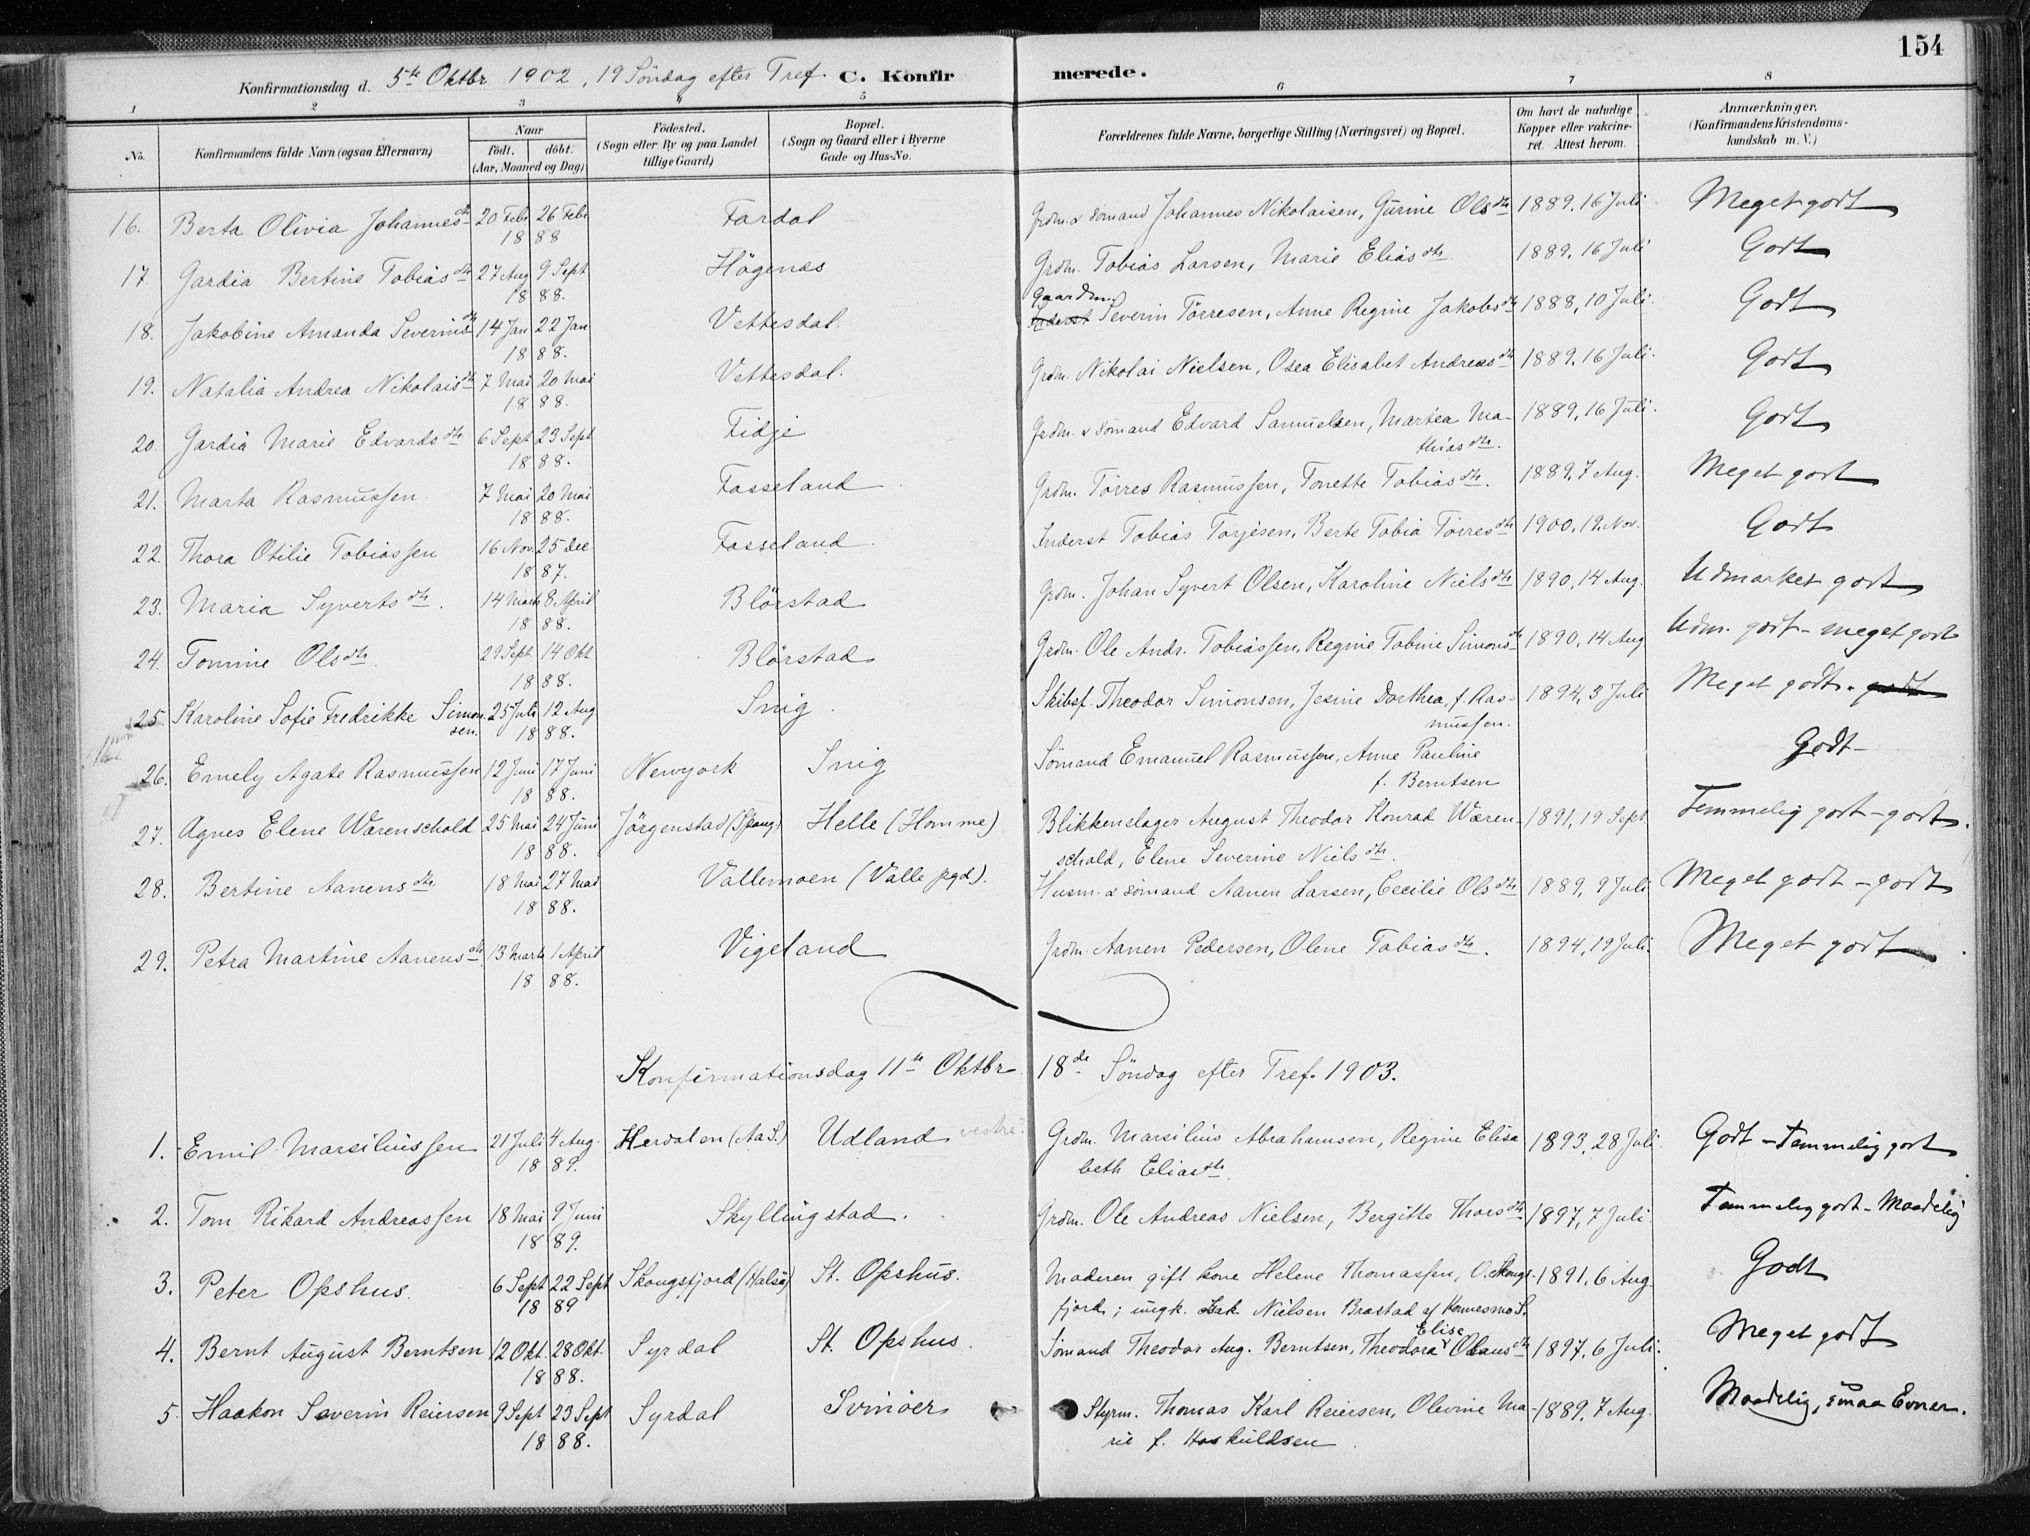 154
Konfirmationsdag d. 5te Oktbr 1902, 19 Söndag efter Tref. C. Konfirmerede.
1 2 3 4 5 6 7 8
No. Konfirmandens fulde Navn (ogsaa Efternavn) Naar födt. döbt. (Aar, Maaned og Dag) Födested. (Sogn eller By og paa Landet tillige Gaard) Bopæl. (Sogn og Gaard eller i Byerne Gade og Hus-No. Forældrenes fulde Navne, borgerlige Stilling (Næringsvei) og Bopæl. Om havt de naturlige Kopper eller vakcineret. Attest herom. Anmærkninger. (Konfirmandens Kristendomskundskab m. V.)
16. Berta Olivia Johannesdtr 20 Febr 26 Febr 1888 Fardal Grdm. & sömand Johannes Nikolaisen, Gurine Olsdtr 1889, 16 Juli Meget godt
17. Gardia Bertine Tobiasdtr 27 Aug 9 Sept 1888. Högenes Grdm. Tobias Larsen, Marie Eliasdtr 1889, 16 Juli Godt
18. Jakobine Amanda Severinsdtr 14 Jan 22 Jan 1888. Vettesdal. Gaardm. Inderst Severin Törresen, Anne Regine Jakobsdtr 1888, 10 Juli. Godt
19. Natalia Andrea Nikolaisdtr 7 Mai 20 Mai 1888. Vettesdal. Grdm. Nikolai Nielsen, Osea Elisabet Andreasdtr 1889, 16 Juli. Godt
20. Gardia Marie Edvardsdtr 6 Sept 23 Sept 1888. Fidje Grdm. & sömand Edvard Samuelsen, Martea Mathiasdtr. 1889, 16 Juli. Godt
21. Marta Rasmussen 7 Mai 20 Mai 1888. Fasseland Grdm. Törres Rasmussen, Tonette Tobiasdtr. 1889, 7 Aug. Meget godt
22. Thora Otilie Tobiassen 16 Nov. 25 Dec 1887. Fasseland Inderst Tobias Torjesen, Berte Tobia Törresdtr 1900, 19. Nov. Godt
23. Maria Syvertsdtr. 14 Marts 8 April 1888. Blörstad Grdm. Johan Syvert Olsen, Karoline Nielsdtr 1890, 14 Aug. Udmærket godt
24. Tomine Olsdtr. 29 Sept 14 Okt 1888. Blörstad Grdm. Ole Andr. Tobiassen, Regine Tobine Simonsdtr 1890, 14 Aug Udm. godt - meget godt
25. Karoline Sofie Fredrikke Simonsen. 25 Juli 12 Aug 1888. Snig. Skibsf. Theodor Simonsen, Jesine Dorthea, f. Rasmussen. 1894, 3 Juli Meget godt. godt
26. Emely Agate Rasmussen 12 Juni 17 Juni 1888. Newyork Snig Sömand Emanuel Rasmussen, Anne Pauline f. Berntsen Godt-
27. Agnes Elene Warenschold 25 Mai 24 Juni 1888. Jörgenstad (Spang.) Helle (Homme) Blikkenslager August Theodor Konrad Wærenschold, Elene Severine Nielsdtr. 1891, 19 Sept Temmelig godt - godt.
28. Bertine Aanensdtr. 18 Mai 27 Mai 1888. Vallemoen (Valle pgd). Husm. & sömand Aanen Larsen, Cecilie Olsdtr 1889, 9 Juli Meget godt - godt
29. Petra Martine Aanensdtr. 13 Marts 1 April 1888. Vigeland Grdm. Aanen Pedersen, Olene Tobiasdtr. 1894, 19 Juli. Meget godt
Konfirmationsdag 11te Oktbr 18de Söndag efter Tref. 1903.
1. Emil Marsiliussen 21 Juli 4 Aug. 1889. Herdalen (Aa S.) Udland vestre Grdm. Marsilius Abrahamsen, Regine Elisabeth Eliasdtr. 1893, 28 Juli. Godt - Temmelig godt
2. Tom Rikard Andreassen 18 Mai 9 Juni 1889. Skyllingstad. Grdm. Ole Andreas Nielsen, Bergitte Thorsdtr 1897, 7 Juli. Temmelig godt - Maadelig
3. Peter Opshus. 6 Sept 22 Sept 1889 Skongsfjord (Halså) St. Opshus. Moderen gift kone Helene Thomassen, O. Skongsfjord; ungk. Isak Nielsen Brastad af Konnesmo S. 1891, 6 Aug. Godt
4. Bernt August Berntsen 12 Okt. 28 Okt. 1888. Syrdal St. Opshus. Sömand Theodor Aug. Berntsen, Theodora Elise Olausdtr 1897, 6 Juli. Meget godt
5. Haakon Severin Reiersen 9 Sept 23 Sept 1888. Syrdal Svinöer Styrm. Thomas Karl Reiersen, Olevine Marie f. Haskuldsen. 1889, 7 Aug. Maadelig, smaa Evner.